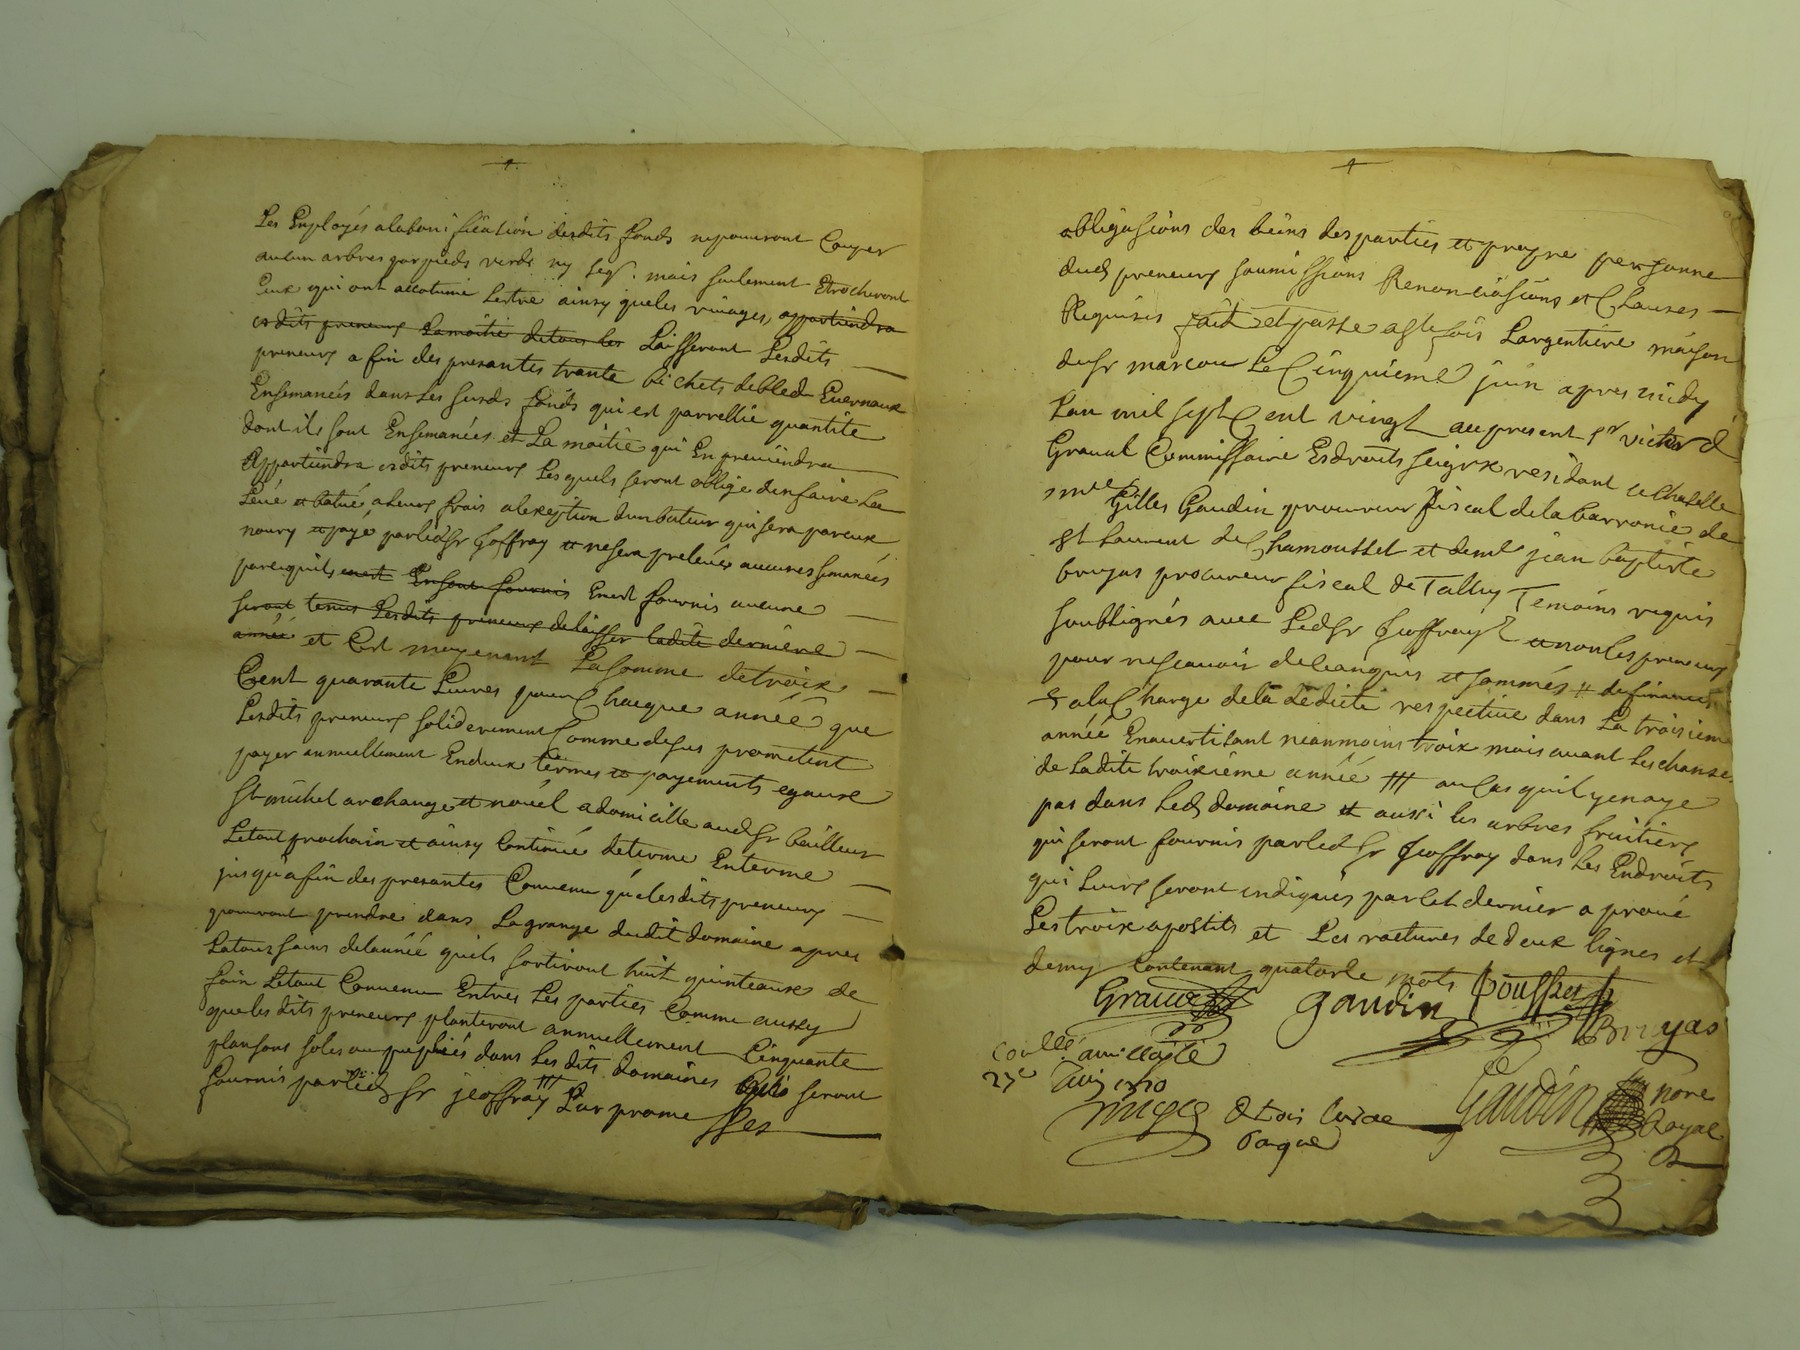 Les Employés alabonification desdits fonds nepouront Couper
aucun arbres par pieds verds ny secs. mais seulement Etrocheront
Ceux qui ont accotumé Lestre ainsy queles vinages, appartiendra
esdits preneurs Lamoitié detous les Laisseront Lesdits
preneurs a fin des presantes trante bichets debled
Ensemancés dans Les susds fonds qui est parrellie quantité
dont ils sont Ensemancés et La moitié qui En proviendra
Appartiendra esdits preneurs Lesquels seront obligé denfaire La
Levé et batué aleurs frais alexeption dunbateur qui sera pareux
noury et payé parledSr Joffray et nesera prelevés aucunes semances
parcequils Ensont fournis Enest fournis aucune
seront tenus Lesdits preneurs delaisser ladite derniere
année et Cest moyenant La somme detroix
Cent quarante Livres pour Chacque année que
Lesdits preneurs soliderement Comme desus prometent
payer annuellement Endeux termes et payements egaux
St michel archange et nouel adomicille audSr bailleur
Letout prochain et ainsy Continué determe Enterme
jusquafin des presantes Convenu quelesdits preneurs
pouront prendre dans La grange dudit domaine apres
Latoussains delannée quils sortiront huit quinteaux de
foin Letout Convenu Entres Les parties Comme aussy
queles dits preneurs planteront annuellement Cinquante
plansons soles ou pupliés dans Les dits domaines quis seront
fournis parledSr jeoffray Sur promesses
obligasions des biens des parties et propre personne
duds preneurs soumissions Renonciasions et Clauses
Requises fait et passé a Ste fois Largentière maison
du Sr marcou Le Cinquieme juin apres midy
Lan mil sept Cent vingt au present Sr victor d
Graval Commissaire Esdroits seigrx residant
mre Gilles Gaudin procureur fiscal dela barronie de
St Laurent de Chamousset et de mre jean baptiste
bruyas procureur fiscal de Talluy Temoins requis
soubsignés avec LedSr Jeoffray et non les preneurs
pour nescavoir delanquis et sommés
et ala Charge dela dédicte respective dans La troisieme
année En avertisant neanmoins troix mois avant Leschanse
de Ladite troixiéme année au Cas quil yenaye
pas dans Led domaine et aussi les arbres fruitiers
qui seront fournis parledSr Jeoffray dans Les Endroits
qui Leurs seront indiqués parlet dernier aprouvé
Les troix apostils et Les ratures de deux lignes et
demy Contenant quatorze mots
Gravel Gaudin Bruyas
Coullé
27e Juin 1720
Gaudin nore
Royal